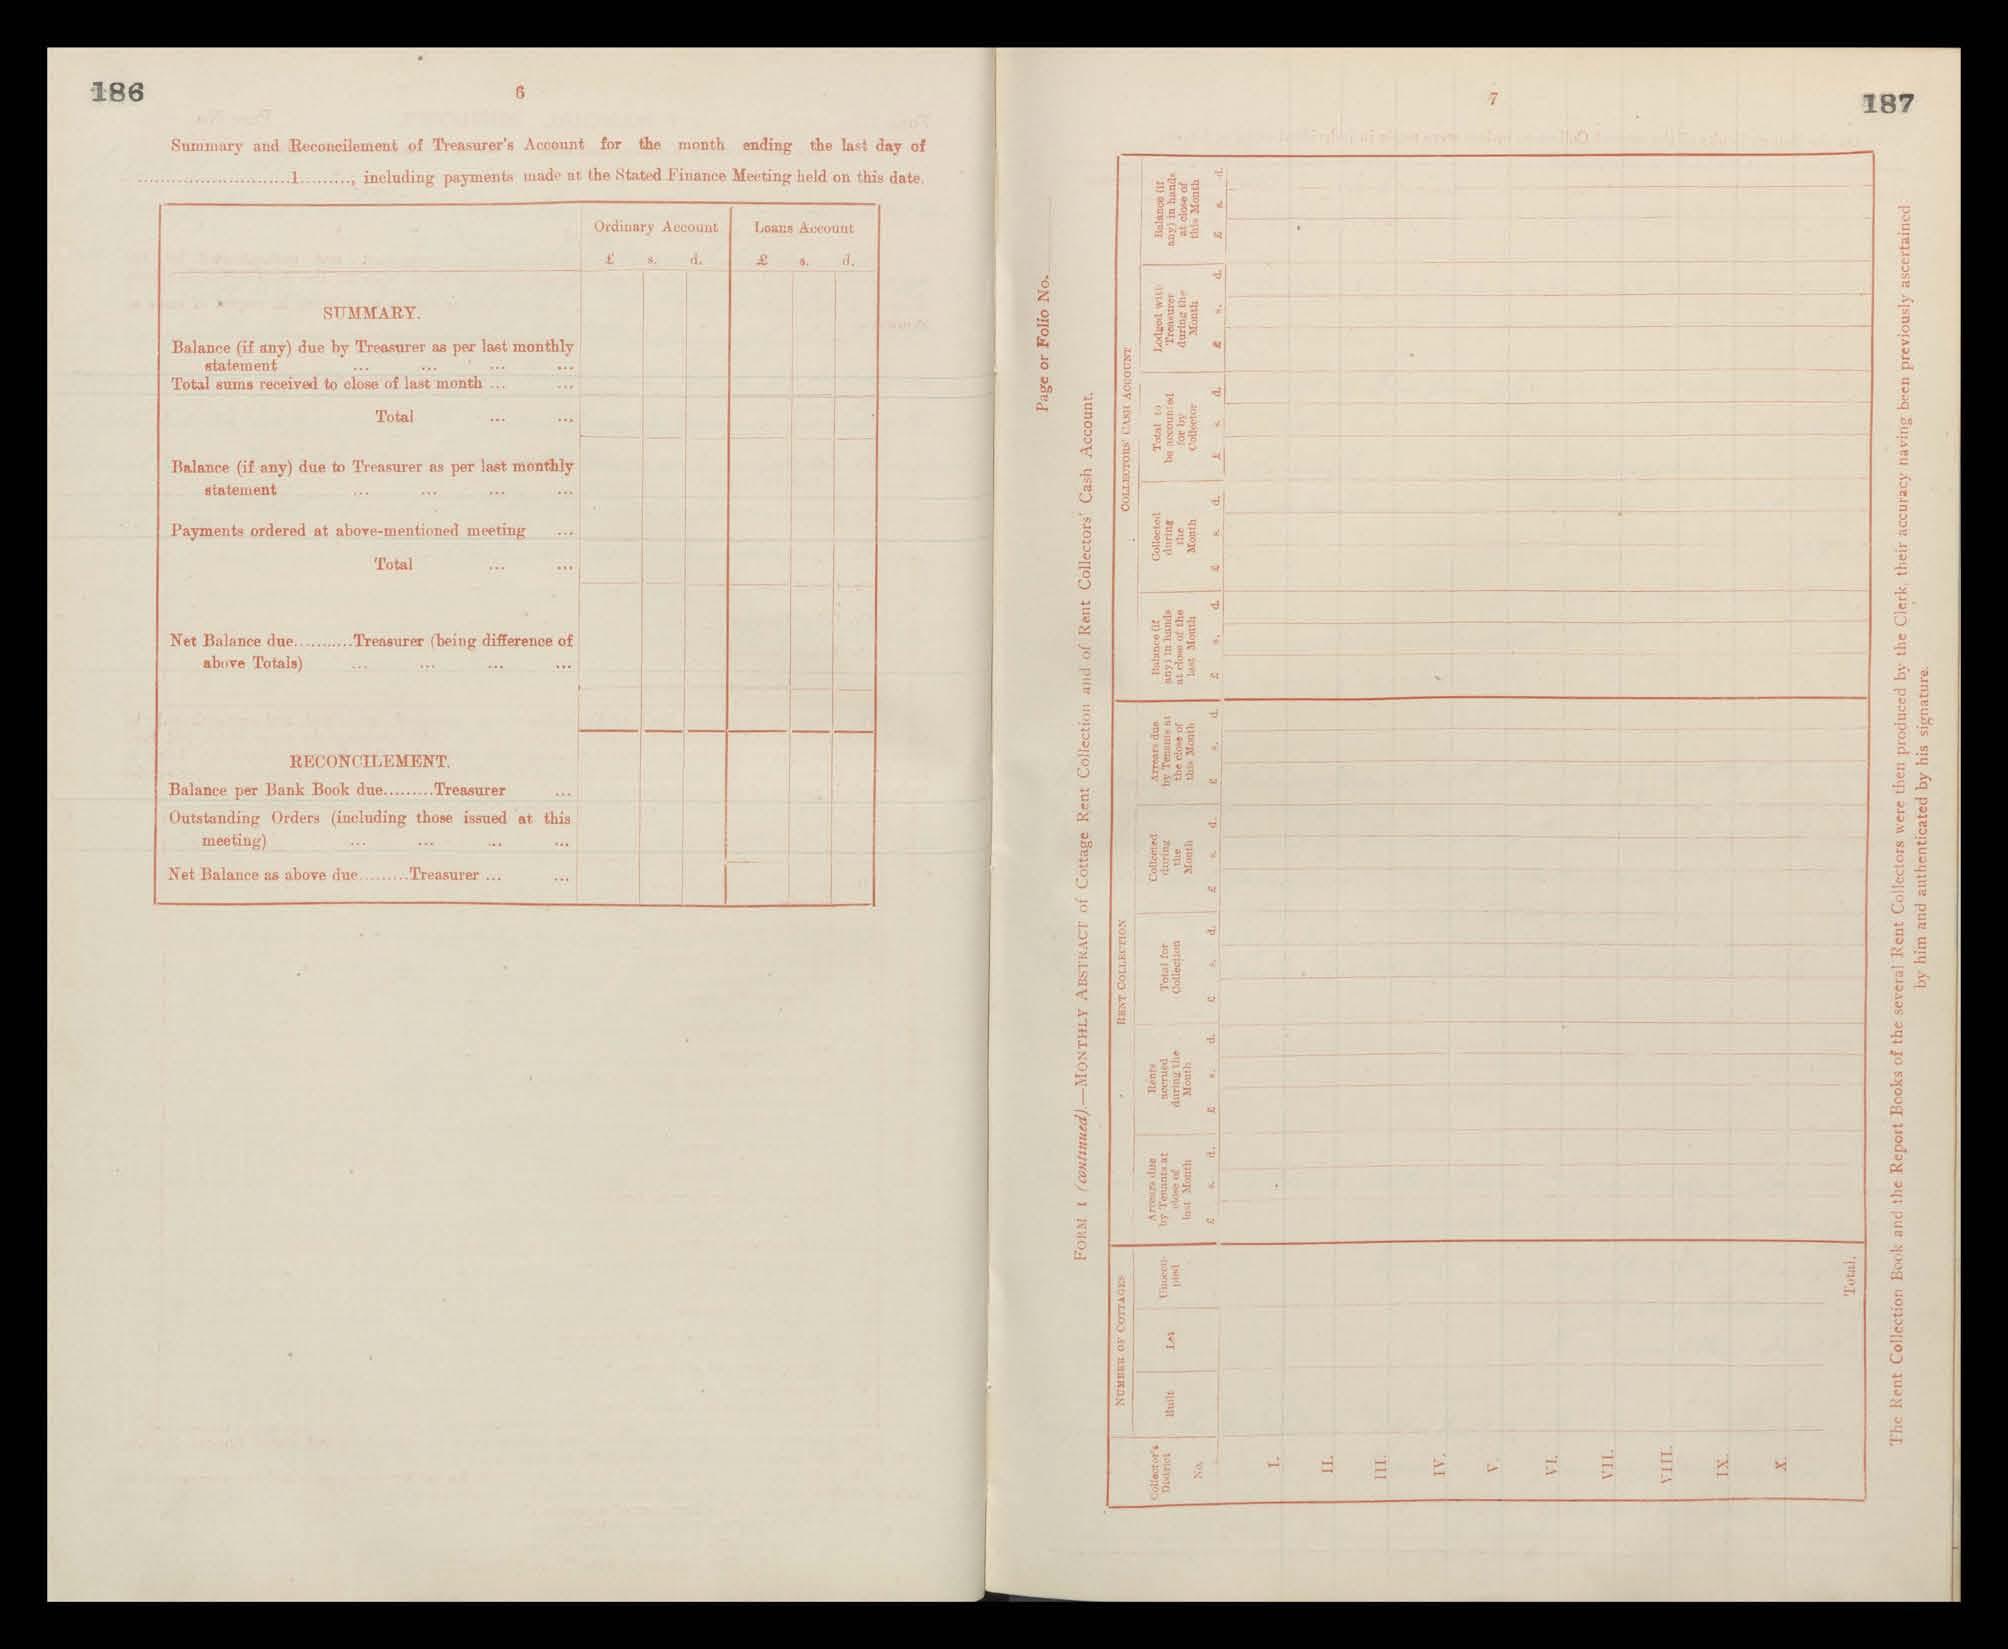 186
6
Summary and Reconcilement of Treasurer's Account for the month ending the last day of
............................1........., including payments made at the Stated Finance Meeting held on this date.
Ordinary Account
Loans Account
£ s. d.
£ s. d.
SUMMARY.
Balance (if any) due by Treasurer as per last monthly
statement ... ... ... ...
Total sums received to close of last month ... ...
Total ... ...
Balance (if any) due to Treasurer as per last monthly
statement ... ... ... ...
Payments ordered at above-mentioned meeting ...
Total ... ...
Net Balance due...........Treasurer (being difference of
above Totals) ... ... ... ...
RECONCILEMENT.
Balance per Bank Book due.........Treasurer ...
Outstanding Orders (including those issued at this
meeting) ... ... ... ...
Net Balance as above due.........Treasurer ... ...
7
187
Page or Folio No.
FORM 1 (continued).—MONTHLY ABSTRACT of Cottage Rent Collection and of Rent Collectors' Cash Account.
NUMBER OF COTTAGES
RENT COLLECTION
COLLECTORS' CASH ACCOUNT
Collector's
District
No.
Built
Let
Unoccu-
pied
Arrears due
by Tenants at
close of
last Month
£ s. d.
Rents
accrued
during the
Month
£ s. d.
Total for
Collection
£ s. d.
Collected
during
the
Month
£ s. d.
Arrears due
by Tenants at
the close of
this Month
£ s. d.
Balance (if
any) in hands
at close of the
last Month
£ s. d.
Collected
during
the
Month
£ s. d.
Total to
be accounted
for by
Collector
£ s. d.
Lodged with
Treasurer
during the
Month
£ s. d.
Balance (if
any) in hands
at close of
this Month
£ s. d.
I.
II.
III.
IV.
V.
VI.
VII.
VIII.
IX.
X.
Total.
The Rent Collection Book and the Report Books of the several Rent Collectors were then produced by the Clerk, their accuracy having been previously ascertained
by him and authenticated by his signature.